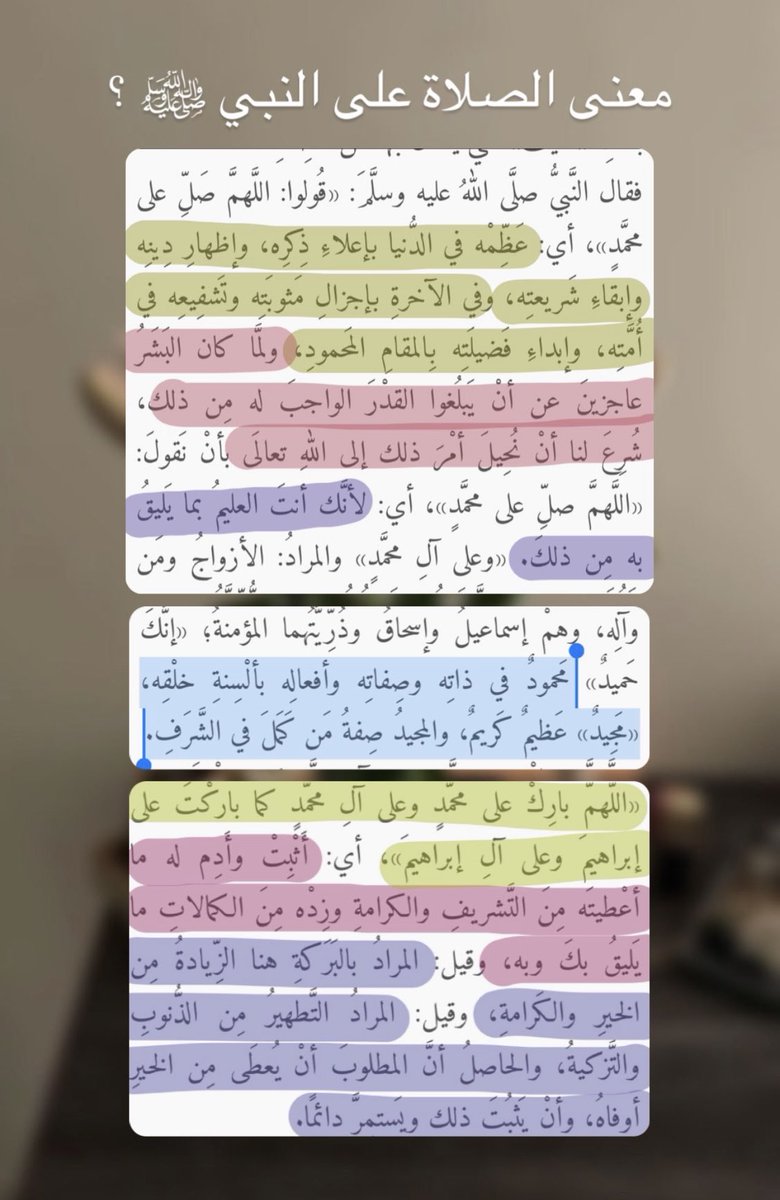 معنى الصلاة على النبي ﷺ ؟
فقال النَّبيُّ صلَّى اللهُ عليه وسلَّمَ: «قُولوا: اللَّهمَّ صَلِّ على
محمَّدٍ»، أي: عَظِّمْه في الدُّنيا بإعلاءِ ذِكرِه، وإظهارِ دِينِه
وإبقاءِ شَريعتِه، وفي الآخرةِ بإجزالِ مَثوبَتِه وتَشفِيعِه في
أُمَّتِه، وإبداءِ فَضيلَتِه بِالمقامِ المَحمودِ، ولمَّا كان البَشَرُ
عاجزينَ عن أنْ يَبلُغوا القَدْرَ الواجبَ له مِن ذلك،
شُرِعَ لنا أنْ نُحِيلَ أمْرَ ذلك إلى اللهِ تعالَى بأنْ نَقولَ:
«اللَّهمَّ صلِّ على محمَّدٍ»، أي: لأنَّك أنتَ العليمُ بما يَليقُ
به مِن ذلكَ. «وعلى آلِ محمَّدٍ» والمرادُ: الأزواجُ ومَن
وآلِه، وهمْ إسماعيلُ وإسحاقُ وذُرِّيَّتُهما المؤمنةُ؛ «إنَّكَ
حَميدٌ» مَحمودٌ في ذاتِه وصِفاتِه وأفعالِه بألْسِنةِ خلْقِه،
«مَجِيدٌ» عَظيمٌ كَريمٌ، والمجيدُ صِفةُ مَن كَمَلَ في الشَّرَفِ.
«اللَّهمَّ بارِكْ على محمَّدٍ وعلى آلِ محمَّدٍ كما باركْتَ على
إبراهيمَ وعلى آلِ إبراهيمَ»، أي: أَثْبِتْ وأَدِم له ما
أعْطيتَه مِنَ التَّشريفِ والكرامةِ وزِدْه مِنَ الكمالاتِ ما
يَليقُ بكَ وبه، وقيل: المرادُ بالبَرَكةِ هنا الزِّيادةُ مِن
الخيرِ والكَرامةِ، وقيل: المرادُ التَّطهيرُ مِن الذُّنوبِ
والتَّزكيةُ، والحاصلُ أنَّ المطلوبَ أنْ يُعطَى مِن الخيرِ
أوفاهُ، وأنْ يَثبُتَ ذلك ويَستمِرَّ دائمًا.